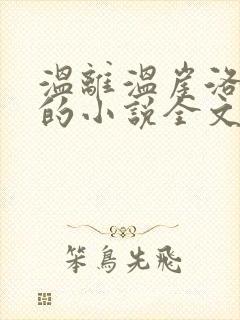 温離温崖洛
的小説全文
笨鳥先飛